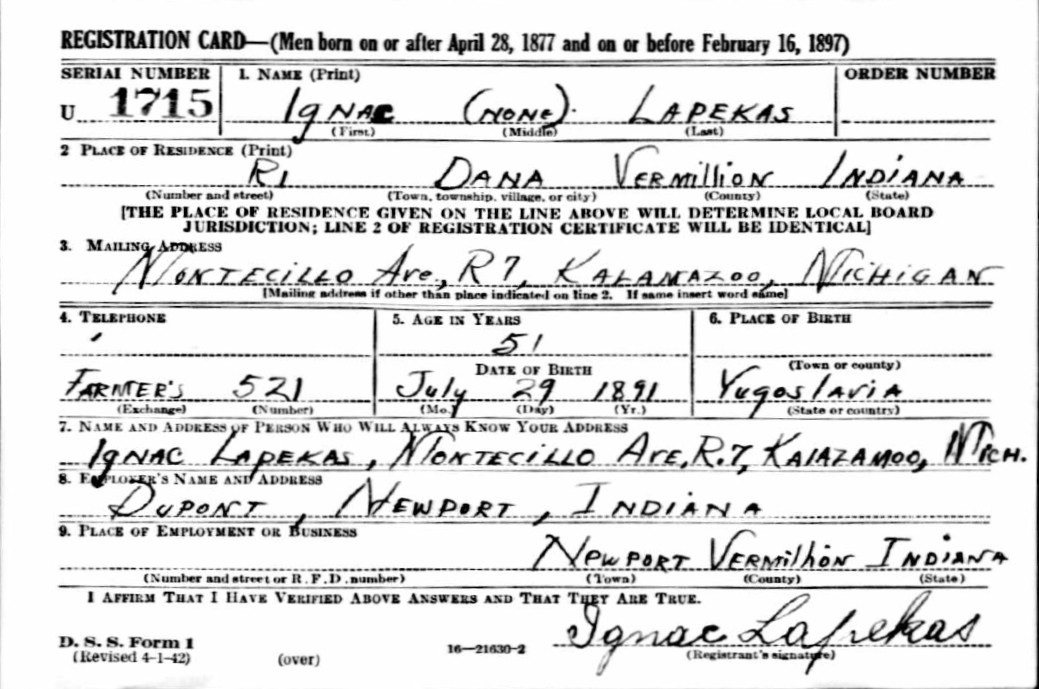 REGISTRATION CARD—(Men born on or after April 28, 1877 and on or before February 16, 1897)
SERIAL NUMBER 1. NAME (Print) ORDER NUMBER
U 1715 IGNAC (NONE). LAPEKAS
(First) (Middle) (Last)
2 PLACE OF RESIDENCE (Print)
R1 DANA VERMILLION INDIANA
(Number and street) (Town, township, village, or city) (County) (State)
[THE PLACE OF RESIDENCE GIVEN ON THE LINE ABOVE WILL DETERMINE LOCAL BOARD
JURISDICTION; LINE 2 OF REGISTRATION CERTIFICATE WILL BE IDENTICAL]
3. MAILING ADDRESS
MONTECILLO AVE, R7, KALAMAZOO, MICHIGAN
[Mailing address if other than place indicated on line 2. If same insert word same]
4. TELEPHONE 5. AGE IN YEARS 6. PLACE OF BIRTH
51
DATE OF BIRTH (Town or county)
FARMER'S 521 July 29 1891 Yugoslavia
(Exchange) (Number) (Mo.) (Day) (Yr.) (State or country)
7. NAME AND ADDRESS OF PERSON WHO WILL ALWAYS KNOW YOUR ADDRESS
IGNAC LAPEKAS, MONTECILLO AVE, R.7, KALAZAMOO, MICH.
8. EMPLOYER'S NAME AND ADDRESS
DUPONT, NEWPORT, INDIANA
9. PLACE OF EMPLOYMENT OR BUSINESS
NEWPORT VERMILLION INDIANA
(Number and street or R. F. D. number) (Town) (County) (State)
I AFFIRM THAT I HAVE VERIFIED ABOVE ANSWERS AND THAT THEY ARE TRUE.
Ignac Lapekas
D. S. S. Form 1
(Revised 4-1-42) (over) 16—21630-2 (Registrant's signature)